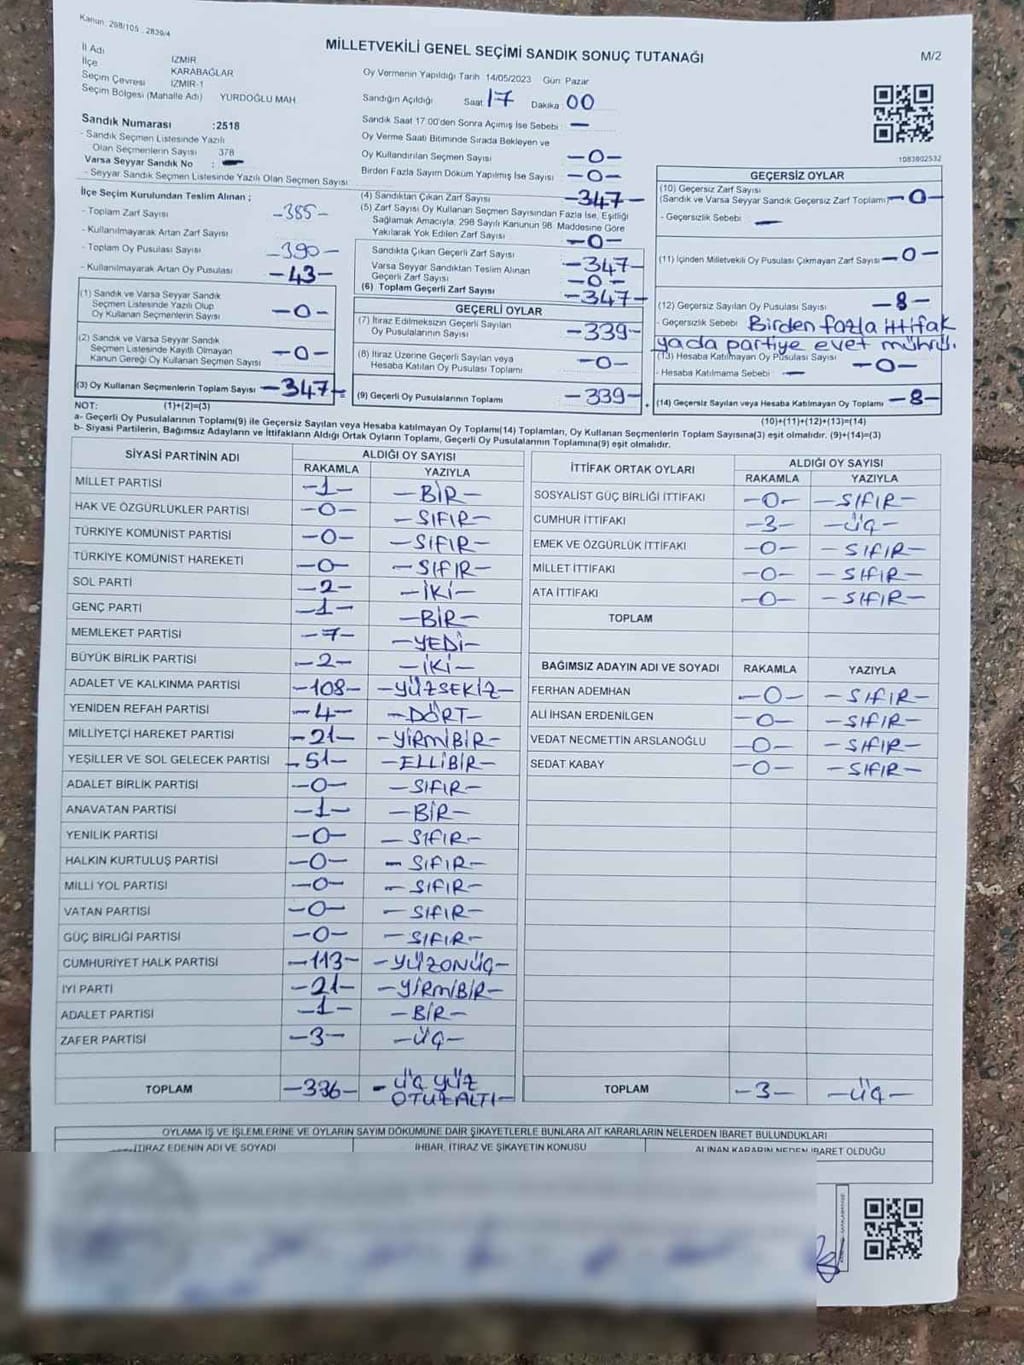 Kanun: 298/105 - 2839/4
MİLLETVEKİLİ GENEL SEÇİMİ SANDIK SONUÇ TUTANAĞI
M/2
İl Adı İZMİR
İlçe KARABAĞLAR
Seçim Çevresi İZMİR-1
Seçim Bölgesi (Mahalle Adı) YURDOĞLU MAH
Sandık Numarası :2518
- Sandık Seçmen Listesinde Yazılı
Olan Seçmenlerin Sayısı 378
Varsa Seyyar Sandık No : -
- Seyyar Sandık Seçmen Listesinde Yazılı Olan Seçmen Sayısı
Oy Vermenin Yapıldığı Tarih 14/05/2023 Gün: Pazar
Sandığın Açıldığı Saat 17 Dakika 00
Sandık Saat 17.00'den Sonra Açımış İse Sebebi : -
Oy Verme Saati Bitiminde Sırada Bekleyen ve
Oy Kullandırılan Seçmen Sayısı -0-
Birden Fazla Sayım Döküm Yapılmış İse Sayısı -0-
1083802532
İlçe Seçim Kurulundan Teslim Alınan ;
- Toplam Zarf Sayısı -385-
- Kullanılmayarak Artan Zarf Sayısı
- Toplam Oy Pusulası Sayısı -390-
- Kullanılmayarak Artan Oy Pusulası -43-
(1) Sandık ve Varsa Seyyar Sandık
Seçmen Listesinde Yazılı Olup
Oy Kullanan Seçmenlerin Sayısı -0-
(2) Sandık ve Varsa Seyyar Sandık
Seçmen Listesinde Kayıtlı Olmayan
Kanun Gereği Oy Kullanan Seçmen Sayısı -0-
(3) Oy Kullanan Seçmenlerin Toplam Sayısı -347-
(4) Sandıktan Çıkan Zarf Sayısı -347-
(5) Zarf Sayısı Oy Kullanan Seçmen Sayısından Fazla İse, Eşitliği
Sağlamak Amacıyla, 298 Sayılı Kanunun 98. Maddesine Göre
Yakılarak Yok Edilen Zarf Sayısı -0-
Sandıkta Çıkan Geçerli Zarf Sayısı -347-
Varsa Seyyar Sandıktan Teslim Alınan
Geçerli Zarf Sayısı -0-
(6) Toplam Geçerli Zarf Sayısı -347-
GEÇERLİ OYLAR
(7) İtiraz Edilmeksizin Geçerli Sayılan
Oy Pusulalarının Sayısı -339-
(8) İtiraz Üzerine Geçerli Sayılan veya
Hesaba Katılan Oy Pusulası Toplamı -0-
(9) Geçerli Oy Pusulalarının Toplamı -339-
GEÇERSİZ OYLAR
(10) Geçersiz Zarf Sayısı
(Sandık ve Varsa Seyyar Sandık Geçersiz Zarf Toplamı) -0-
- Geçersizlik Sebebi : -
(11) İçinden Milletvekili Oy Pusulası Çıkmayan Zarf Sayısı -0-
(12) Geçersiz Sayılan Oy Pusulası Sayısı -8-
- Geçersizlik Sebebi Birden fazla ittifak
yada partiye evet mührü.
(13) Hesaba Katılmayan Oy Pusulası Sayısı -0-
- Hesaba Katılmama Sebebi : -
(14) Geçersiz Sayılan veya Hesaba Katılmayan Oy Toplamı -8-
NOT: (1)+(2)=(3) (10)+(11)+(12)+(13)=(14)
a- Geçerli Oy Pusulalarının Toplamı(9) ile Geçersiz Sayılan veya Hesaba katılmayan Oy Toplamı(14) Toplamları, Oy Kullanan Seçmenlerin Toplam Sayısına(3) eşit olmalıdır.
b- Siyasi Partilerin, Bağımsız Adayların ve İttifakların Aldığı Ortak Oyların Toplamı, Geçerli Oy Pusulalarının Toplamına(9) eşit olmalıdır. (9)+(14)=(3)
SİYASİ PARTİNİN ADI ALDIĞI OY SAYISI
RAKAMLA YAZIYLA
MİLLET PARTİSİ -1- -BİR-
HAK VE ÖZGÜRLÜKLER PARTİSİ -0- -SIFIR-
TÜRKİYE KOMÜNİST PARTİSİ -0- -SIFIR-
TÜRKİYE KOMÜNİST HAREKETİ -0- -SIFIR-
SOL PARTİ -2- -İKİ-
GENÇ PARTİ -1- -BİR-
MEMLEKET PARTİSİ -7- -YEDİ-
BÜYÜK BİRLİK PARTİSİ -2- -İKİ-
ADALET VE KALKINMA PARTİSİ -108- -YÜZSEKİZ-
YENİDEN REFAH PARTİSİ -4- -DÖRT-
MİLLİYETÇİ HAREKET PARTİSİ -21- -YİRMİBİR-
YEŞİLLER VE SOL GELECEK PARTİSİ -51- -ELLİBİR-
ADALET BİRLİK PARTİSİ -0- -SIFIR-
ANAVATAN PARTİSİ -1- -BİR-
YENİLİK PARTİSİ -0- -SIFIR-
HALKIN KURTULUŞ PARTİSİ -0- -SIFIR-
MİLLİ YOL PARTİSİ -0- -SIFIR-
VATAN PARTİSİ -0- -SIFIR-
GÜÇ BİRLİĞİ PARTİSİ -0- -SIFIR-
CUMHURİYET HALK PARTİSİ -113- -YÜZONÜÇ-
İYİ PARTİ -21- -YİRMİBİR-
ADALET PARTİSİ -1- -BİR-
ZAFER PARTİSİ -3- -ÜÇ-
TOPLAM -336- -ÜÇ YÜZ
OTUZALTI-
İTTİFAK ORTAK OYLARI ALDIĞI OY SAYISI
RAKAMLA YAZIYLA
SOSYALİST GÜÇ BİRLİĞİ İTTİFAKI -0- -SIFIR-
CUMHUR İTTİFAKI -3- -ÜÇ-
EMEK VE ÖZGÜRLÜK İTTİFAKI -0- -SIFIR-
MİLLET İTTİFAKI -0- -SIFIR-
ATA İTTİFAKI -0- -SIFIR-
TOPLAM
BAĞIMSIZ ADAYIN ADI VE SOYADI RAKAMLA YAZIYLA
FERHAN ADEMHAN -0- -SIFIR-
ALİ İHSAN ERDENİLGEN -0- -SIFIR-
VEDAT NECMETTİN ARSLANOĞLU -0- -SIFIR-
SEDAT KABAY -0- -SIFIR-
TOPLAM -3- -ÜÇ-
OYLAMA İŞ VE İŞLEMLERİNE VE OYLARIN SAYIM DÖKÜMÜNE DAİR ŞİKAYETLERLE BUNLARA AİT KARARLARIN NELERDEN İBARET BULUNDUKLARI
İTİRAZ EDENİN ADI VE SOYADI İHBAR, İTİRAZ VE ŞİKAYETİN KONUSU ALINAN KARARIN NEDEN İBARET OLDUĞU